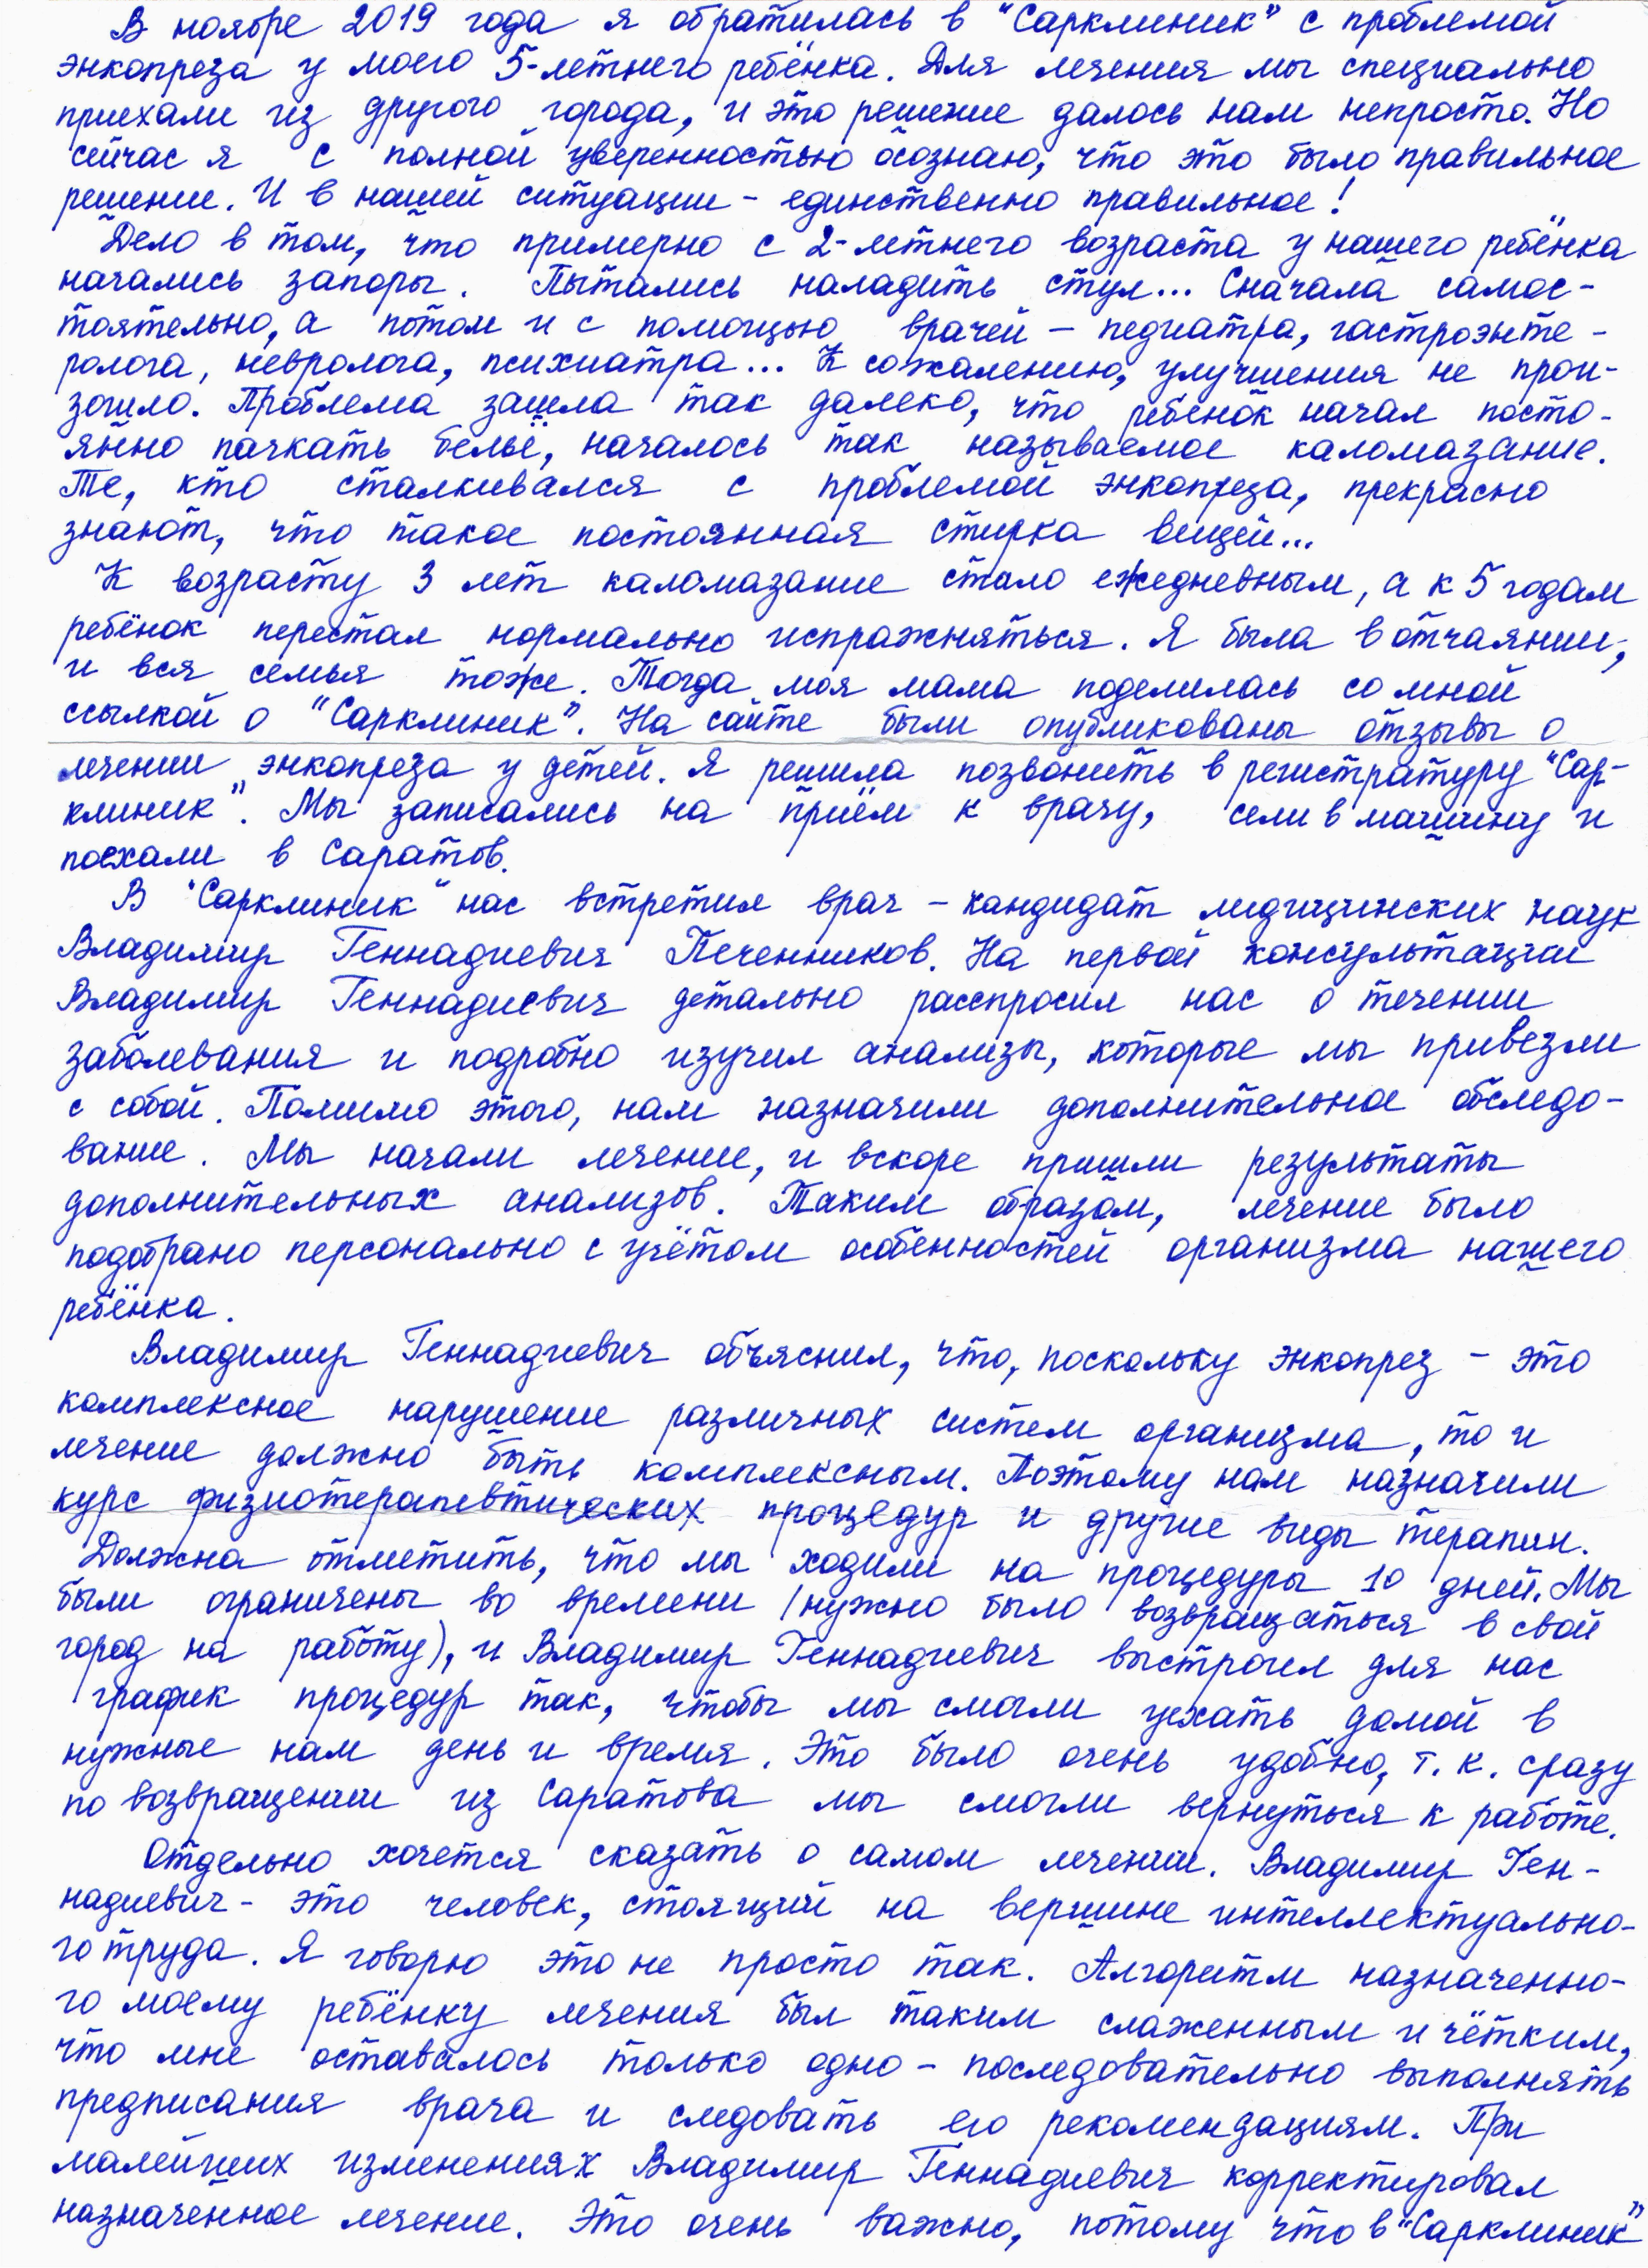 В ноябре 2019 года я обратилась в "Сарклиник" с проблемой
энкопреза у моего 5-летнего ребёнка. Для лечения мы специально
приехали из другого города, и это решение далось нам непросто. Но
сейчас я с полной уверенностью осознаю, что это было правильное
решение. И в нашей ситуации - единственно правильное!
Дело в том, что примерно с 2-летнего возраста у нашего ребёнка
начались запоры. Пытались наладить стул... Сначала самос-
тоятельно, а потом и с помощью врачей - педиатра, гастроэнте-
ролога, невролога, психиатра... К сожалению, улучшения не прои-
зошло. Проблема зашла так далеко, что ребёнок начал посто-
янно пачкать бельё, началось так называемое каломазание.
Те, кто сталкивался с проблемой энкопреза, прекрасно
знают, что такое постоянная стирка вещей...
К возрасту 3 лет каломазание стало ежедневным, а к 5 годам
ребёнок перестал нормально испражняться. Я была в отчаянии,
и вся семья тоже. Тогда моя мама поделилась со мной
ссылкой о "Сарклиник". На сайте были опубликованы отзывы о
лечении энкопреза у детей. Я решила позвонить в регистратуру "Сар-
клиник". Мы записались на приём к врачу, сели в машину и
поехали в Саратов.
В "Сарклиник" нас встретил врач - кандидат медицинских наук
Владимир Геннадиевич Печенников. На первой консультации
Владимир Геннадиевич детально расспросил нас о течении
заболевания и подробно изучил анализы, которые мы привезли
с собой. Помимо этого, нам назначили дополнительное обследо-
вание. Мы начали лечение, и вскоре пришли результаты
дополнительных анализов. Таким образом, лечение было
подобрано персонально с учётом особенностей организма нашего
ребёнка.
Владимир Геннадиевич объяснил, что, поскольку энкопрез - это
комплексное нарушение различных систем организма, то и
лечение должно быть комплексным. Поэтому нам назначили
курс физиотерапевтических процедур и другие виды терапии.
Должна отметить, что мы ходили на процедуры 10 дней. Мы
были ограничены во времени (нужно было возвращаться в свой
город на работу), и Владимир Геннадиевич выстроил для нас
график процедур так, чтобы мы смогли уехать домой в
нужные нам день и время. Это было очень удобно, т. к. сразу
по возвращении из Саратова мы смогли вернуться к работе.
Отдельно хочется сказать о самом лечении. Владимир Ген-
надиевич - это человек, стоящий на вершине интеллектуально-
го труда. Я говорю это не просто так. Алгоритм назначенно-
го моему ребёнку лечения был таким слаженным и чётким,
что мне оставалось только одно - последовательно выполнять
предписания врача и следовать его рекомендациям. При
малейших изменениях Владимир Геннадиевич корректировал
назначенное лечение. Это очень важно, потому что в "Сарклиник"